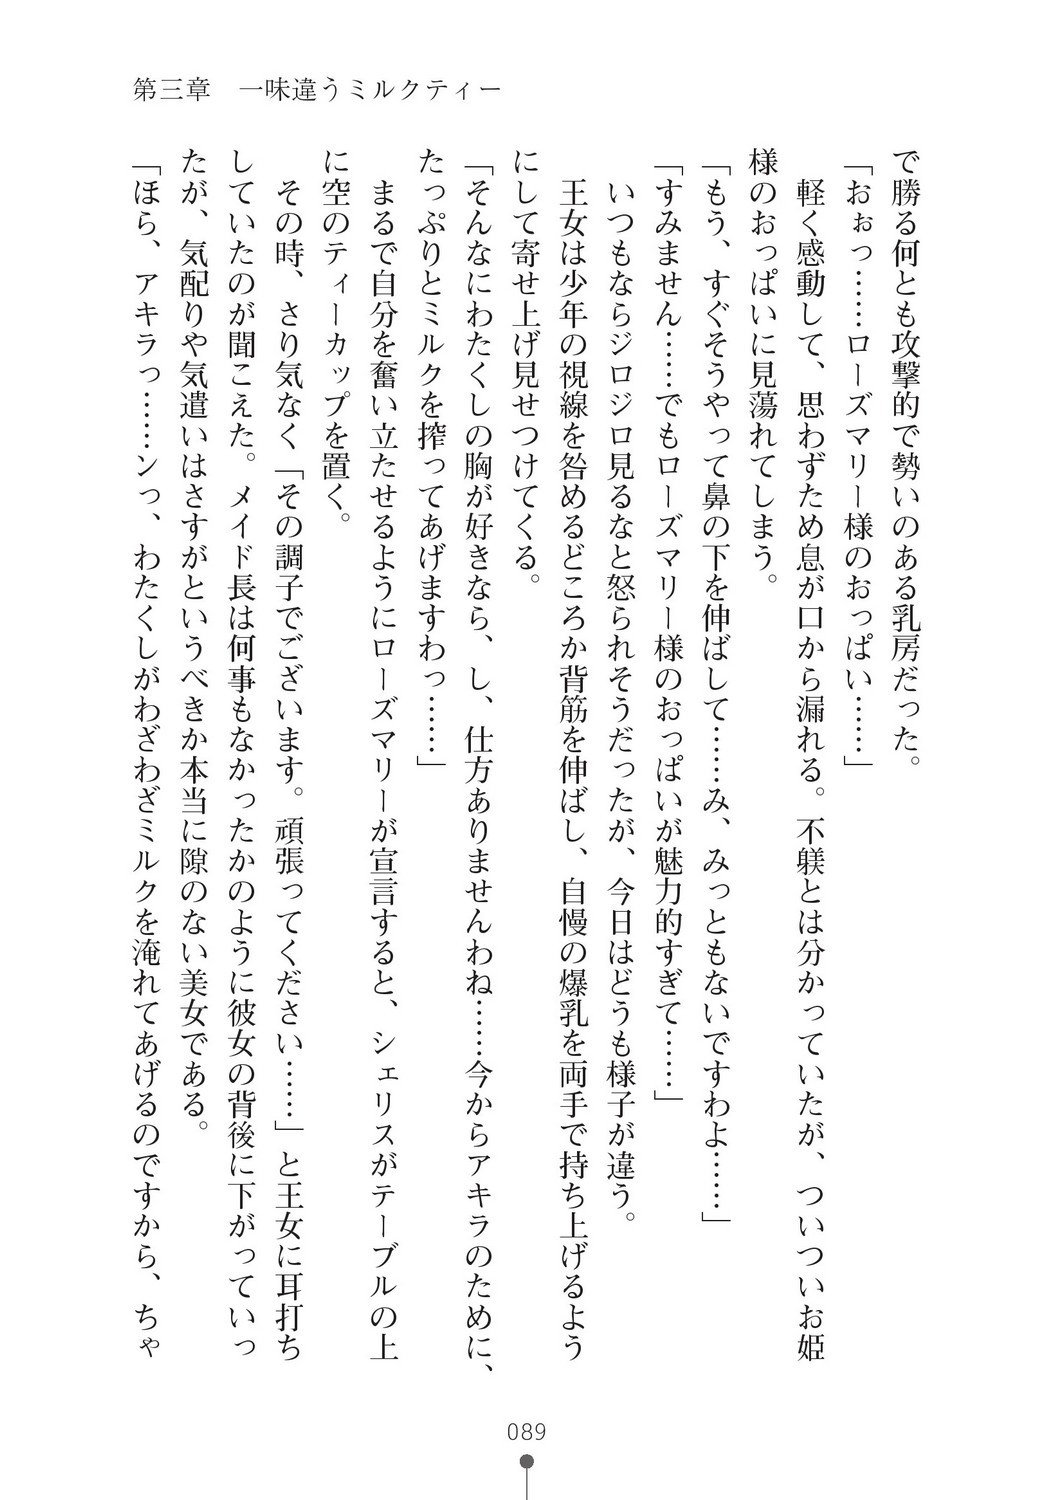 第三章　一味違うミルクティー
で勝る何とも攻撃的で勢いのある乳房だった。
「おぉっ……ローズマリー様のおっぱい……」
　軽く感動して、思わずため息が口から漏れる。不躾とは分かっていたが、ついついお姫
様のおっぱいに見蕩れてしまう。
「もう、すぐそうやって鼻の下を伸ばして……み、みっともないですわよ……」
「すみません……でもローズマリー様のおっぱいが魅力的すぎて……」
　いつもならジロジロ見るなと怒られそうだったが、今日はどうも様子が違う。
　王女は少年の視線を咎めるどころか背筋を伸ばし、自慢の爆乳を両手で持ち上げるよう
にして寄せ上げ見せつけてくる。
「そんなにわたくしの胸が好きなら、し、仕方ありませんわね……今からアキラのために、
たっぷりとミルクを搾ってあげますわっ……」
　まるで自分を奮い立たせるようにローズマリーが宣言すると、シェリスがテーブルの上
に空のティーカップを置く。
　その時、さり気なく「その調子でございます。頑張ってください……」と王女に耳打ち
していたのが聞こえた。メイド長は何事もなかったかのように彼女の背後に下がっていっ
たが、気配りや気遣いはさすがというべきか本当に隙のない美女である。
「ほら、アキラっ……ンっ、わたくしがわざわざミルクを淹れてあげるのですから、ちゃ
089